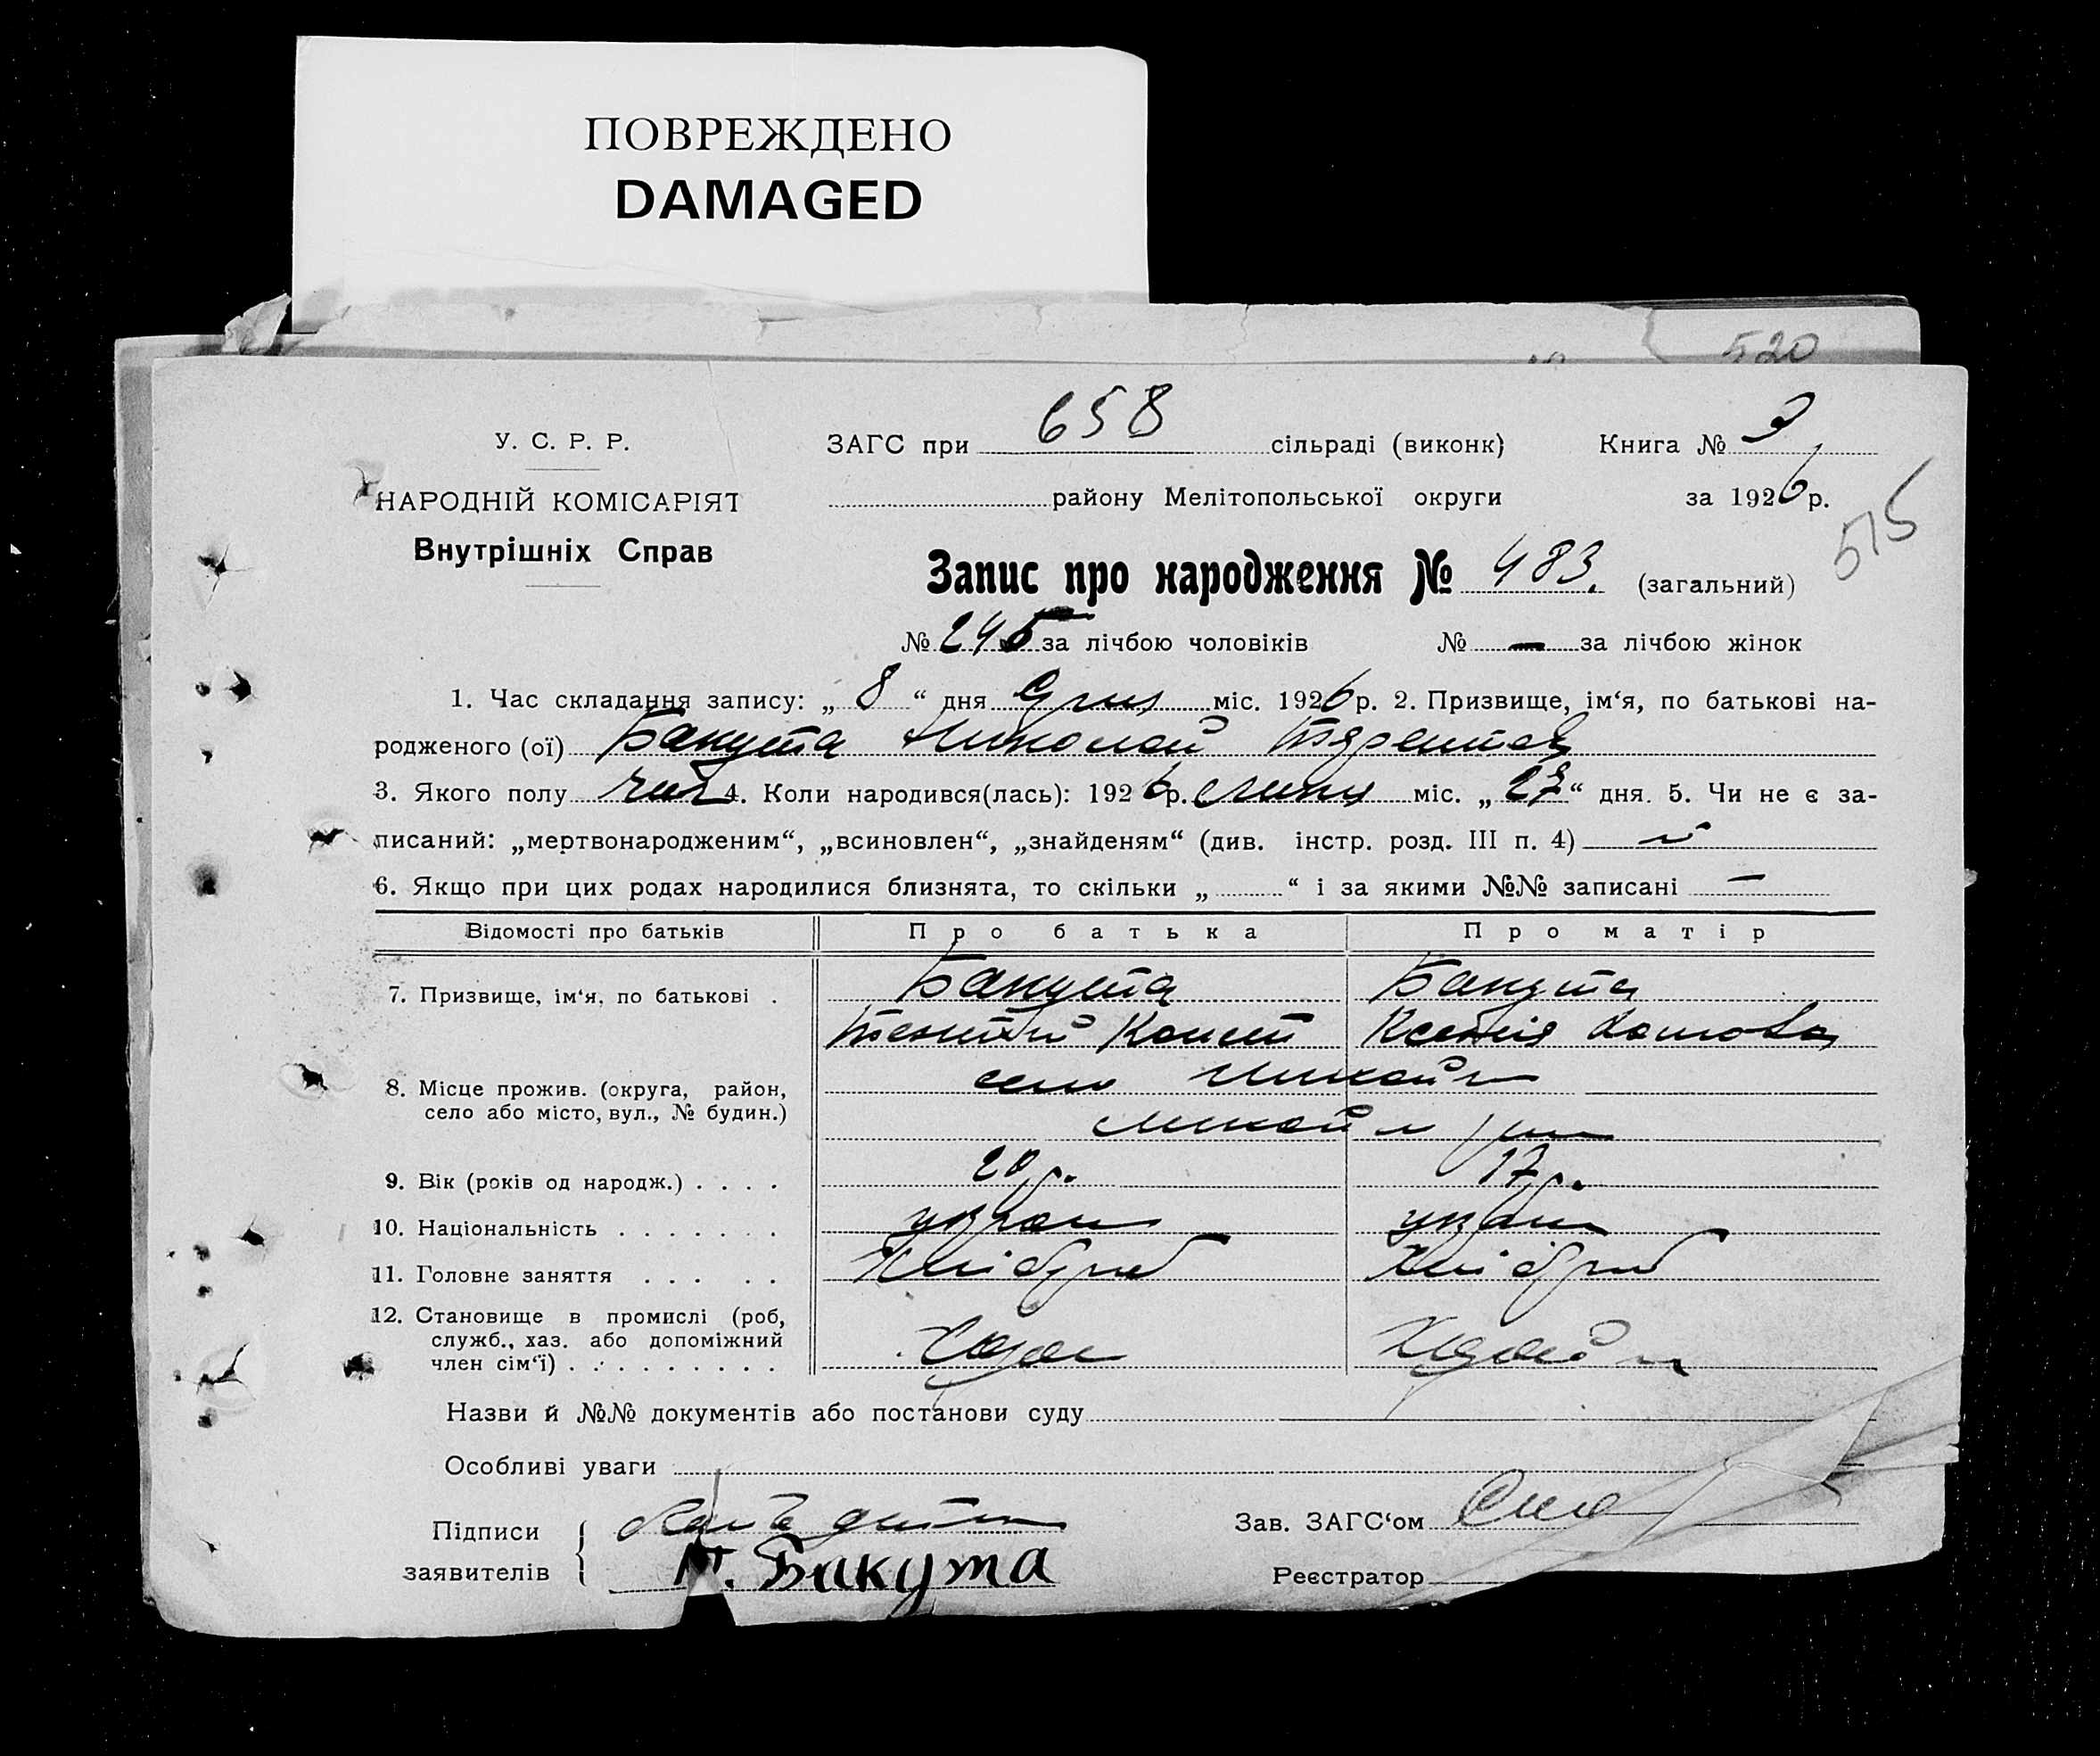 ПОВРЕЖДЕНО
DAMAGED
520
У. С. Р. Р.
ЗАГС при 658 сільраді (виконк) Книга № 3
НАРОДНІЙ КОМІСАРІЯТ
району Мелітопольської округи за 1926 р.
515
Внутрішніх Справ
Запис про народження № 483. (загальний)
№ 245 за лічбою чоловіків № — за лічбою жінок
1. Час складання запису: „ 8 “ дня міс. 1926 р. 2. Призвище, ім‘я, по батькові на-
родженого (ої) Бакута Николай
3. Якого полу 4. Коли народився(лась): 1926 р. міс. „ 27 “ дня. 5. Чи не є за-
писаний: „мертвонародженим“, „всиновлен“, „знайденям“ (див. інстр. розд. III п. 4)
6. Якщо при цих родах народилися близнята, то скільки „ “ і за якими №№ записані —
Відомості про батьків Про батька Про матір
7. Призвище, ім‘я, по батькові . Бакута Бакута
Ксенія
8. Місце прожив. (округа, район, село або місто, вул., № будин.) село
9. Вік (років од народж.) . . . . 20 р. 17 р.
10. Національність . . . . . . . украин украин
11. Головне заняття . . . . . Хлібороб Хлібороб
12. Становище в промислі (роб, служб., хаз. або допоміжний член сім‘ї) . . . . . . . . . Хазяин
Назви й №№ документів або постанови суду
Особливі уваги
Підписи заявителів { Зав. ЗАГС‘ом
Бакута Реєстратор